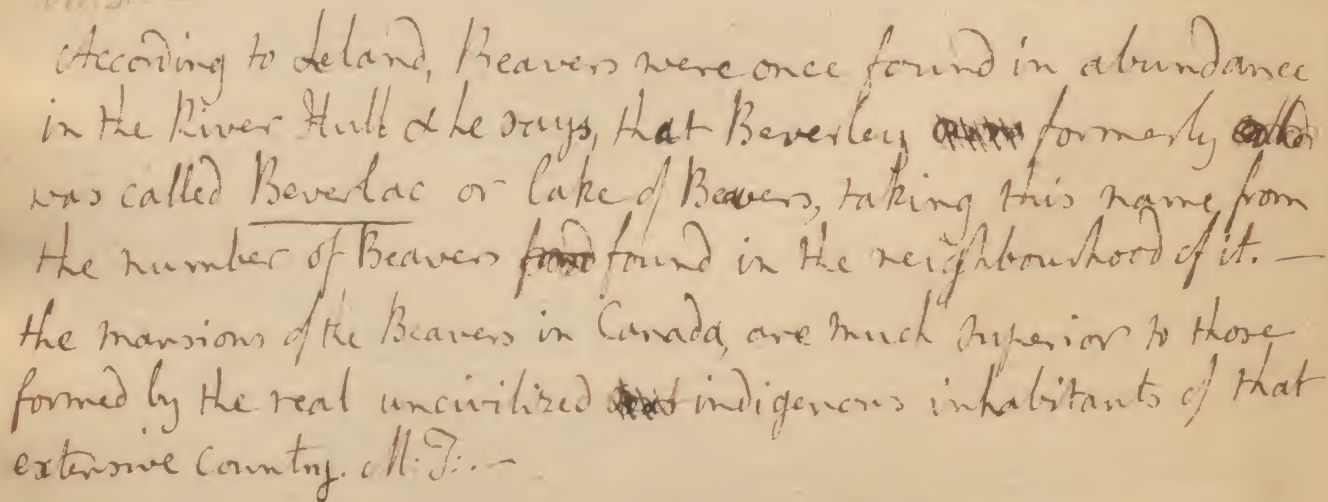 According to Leland, Beavers were once found in abundance
in the River Hull & he says, that Beverley formerly
was called Beverlac or lake of Beavers, taking this name from
the number of Beavers found in the neighbourhood of it. —
the mansions of the Beavers in Canada, are much superior to those
formed by the real uncivilized indigenous inhabitants of that
extensive Country. M: T:. —